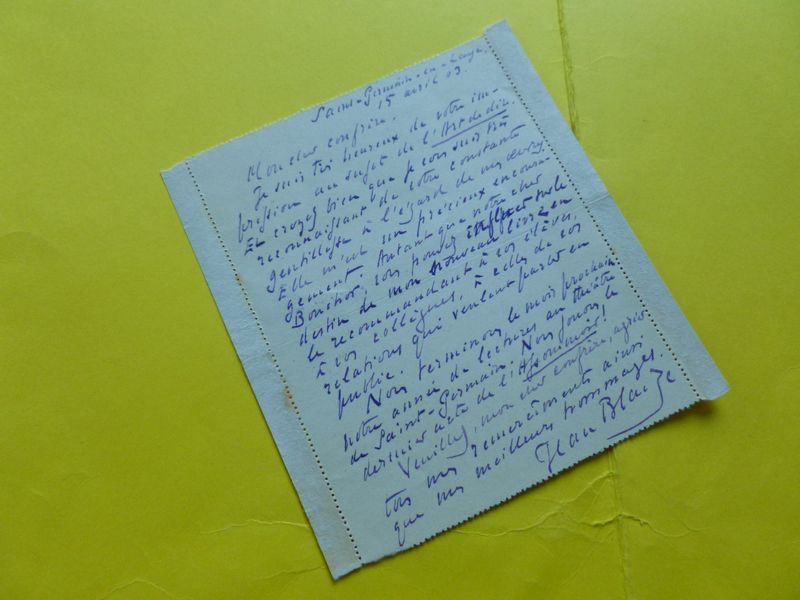 Saint-Germain-en-Laye,
15 avril 03.
Mon cher confrère,
Je suis très heureux de votre im-
pression au sujet de l'Art de dire.
Et croyez bien que je vous suis très
reconnaissant de votre constante
gentillesse à l'égard de mes œuvres.
Elle m'est un précieux encoura-
gement. Autant que notre cher
vous pouvez influer sur le
destin de mon nouveau livre en
le recommandant à vos élèves,
à vos collègues, à celles de vos
relations qui veulent parler en
public.
Nous terminons le mois prochain
notre année de lectures au théâtre
de Saint-Germain. Nous jouons le
dernier acte de l'Assommoir!
Veuillez, mon cher confrère, agréer
tous mes remerciements ainsi
que mes meilleurs hommages.
Jean Blaize